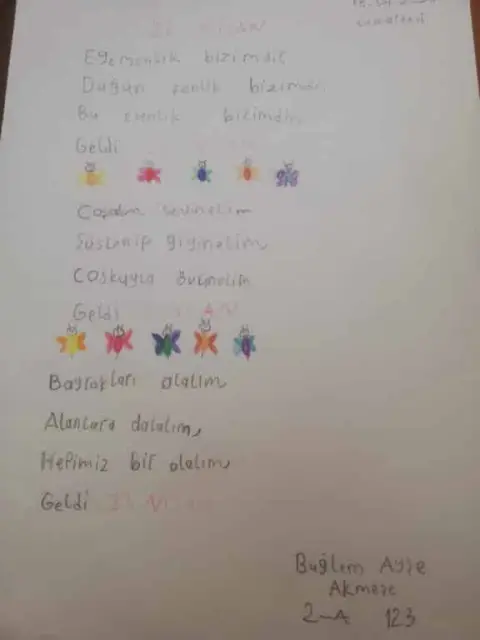 23 NİSAN
Egemenlik bizimdir
Düğün senlik bizimdir
Bu senlik bizimdir
Geldi
Coşalım sevinelim
Süslenip giyinelim
Coşkuyla
Geldi NİSAN
Bayrakları alalım
Alanlara dalalım,
Hepimiz bir olalım,
Geldi 23 Ni
Bağlem Ayşe
Akmeşe
2-A 123